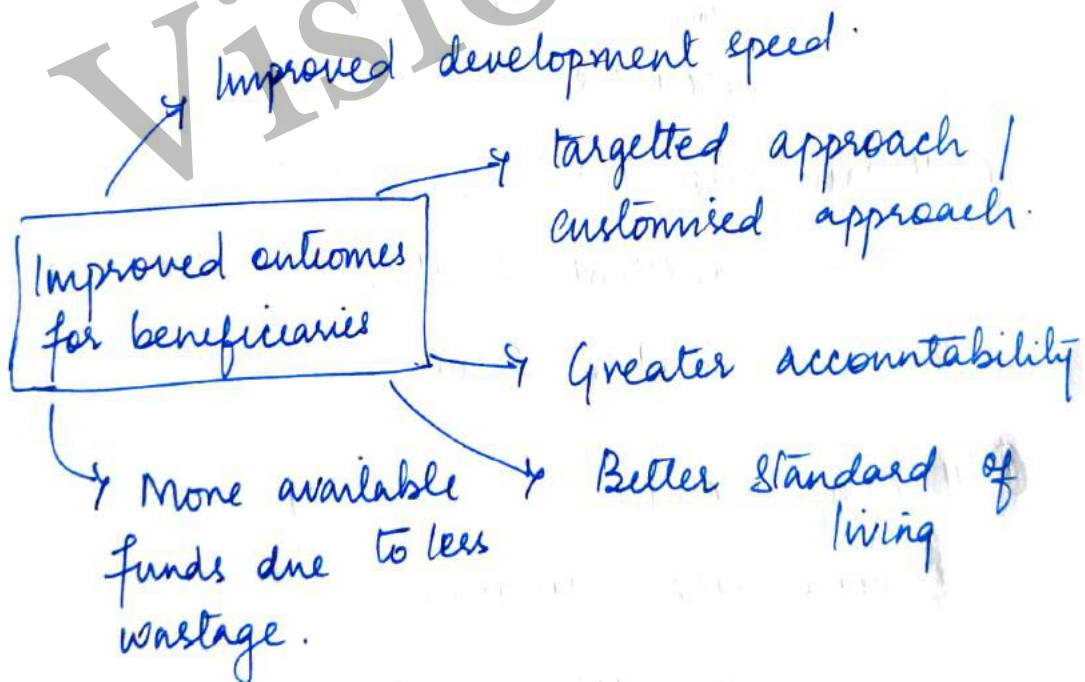 Visio
Improved development speed.
targetted approach /
customised approach.
Improved outcomes
for beneficiaries
Greater accountability
More available
funds due to less
wastage.
Better standard of
living